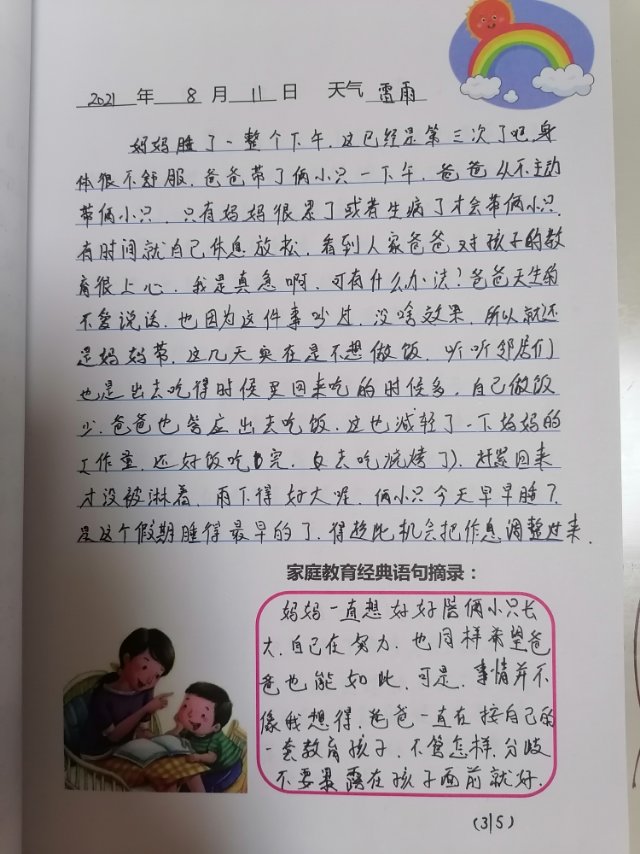 2021 年 8 月 11 日 天气 雷雨
妈妈睡了一整个下午.这已经是第三次了吧,身
体很不舒服.爸爸带了俩小只一下午.爸爸从不主动
带俩小只.只有妈妈很累了或者生病了才会带俩小只.
有时间就自己休息放松.看到人家爸爸对孩子的教
育很上心.我是真急啊,可有什么办法?爸爸天生的
不爱说话.也因为这件事吵过.没啥效果.所以就还
是妈妈带.这几天实在是不想做饭.听听邻居们
也是出去吃得时候里回来吃的时候多,自己做饭
少.爸爸也答应出去吃饭.这也减轻了一下妈妈的
工作量.还好饭吃完.去吃烧烤了).赶紧回来
才没被淋着.雨下得好大喔.俩小只今天早早睡了
是这个假期睡得最早的了.得趁此机会把作息调整过来.
家庭教育经典语句摘录:
妈妈一直想好好陪俩小只长
大.自己在努力.也同样希望爸
爸也能如此.可是.事情并不
像我想得.爸爸一直在按自己的
一套教育孩子.不管怎样.分歧
不要暴露在孩子面前就好.
(315)